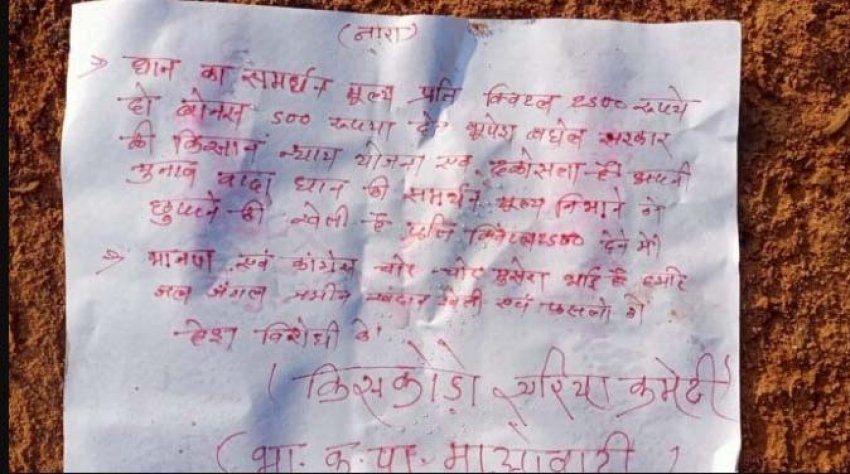 (नारा)
→ धान का समर्थन मूल्य प्रति क्विंटल 2500 रूपये
दो बोनस 500 रूपया दे भूपेश बघेल सरकार
की किसान न्याय योजना एक ढकोसला है अपनी
चुनाव वादा धान की समर्थन मूल्य निभाने में
छुपाने की है प्रति क्विंटल 2500 देने में।
→ भाजपा एवं कांग्रेस चोर चोर मुसेरा भाई है हमारे
जल जंगल जमीन खदान खेती एवं फसलो
विरोधी
(किसकोड़ो एरिया कमेटी)
(भा. क. पा. माओवादी)